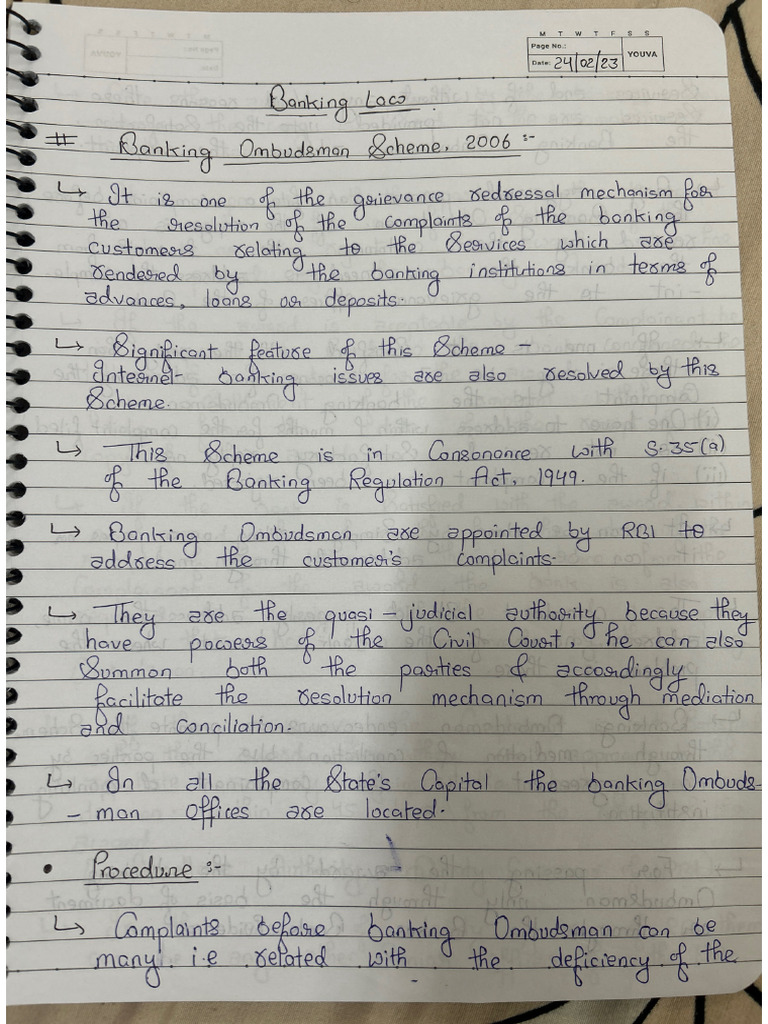 M T W T F S S
Page No.:
Date: 24/02/23
YOUVA
Banking Law.
# Banking Ombudsman Scheme, 2006 :-
↳ It is one of the grievance redressal mechanism for
the resolution of the complaints of the banking
customers relating to the Services which are
rendered by the banking institutions in terms of
advances, loans or deposits.
↳ Significant feature of this Scheme -
Internet- banking issues are also resolved by this
Scheme.
↳ This Scheme is in Consonance with S.35(a)
of the Banking Regulation Act, 1949.
↳ Banking Ombudsman are appointed by RBI to
address the customer's complaints.
↳ They are the quasi-judicial authority because they
have powers of the Civil Court, he can also
Summon both the parities & accordingly
facilitate the resolution mechanism through mediation
and conciliation.
↳ In all the State's Capital the banking Ombuds-
- man offices are located.
• Procedure :-
↳ Complaints before banking Ombudsman can be
many i.e related with the deficiency of the